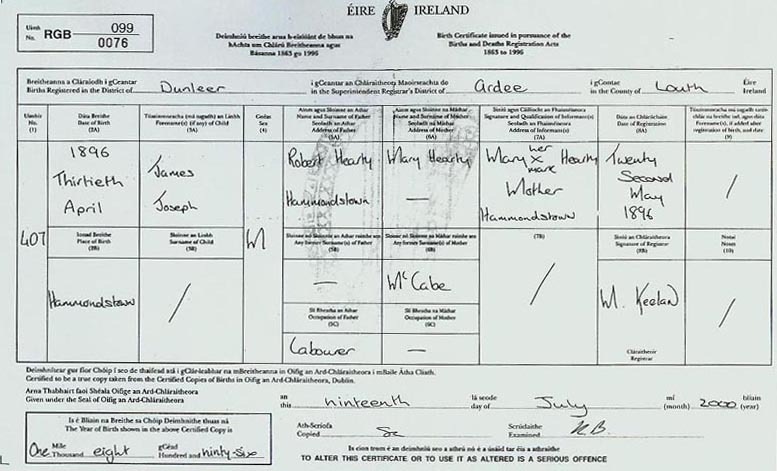 ÉIRE IRELAND
Uimh
No. RGB 099
0076
Deimhniú breithe arna h-eisiúint de bhun na
hAchta um Chlárú Breitheanna agus
Básanna 1863 go 1996
Birth Certificate issued in pursuance of the
Births and Deaths Registration Acts
1863 to 1996
Breitheanna a Cláraíodh i gCeantar
Births Registered in the District of Dunleer
i gCeantar an Chláraitheora Maoirseachta do
in the Superintendent Registrar's District of Ardee
i gContae
in the County of Louth
Éire
Ireland
Uimhir
No.
(1)
Dáta Breithe
Date of Birth
(2A)
Túsainmneacha (má tugadh) an Linbh
Forename(s) (if any) of Child
(3A)
Gnéas
Sex
(4)
Ainm agus Sloinne an Athar
Name and Surname of Father
Seoladh an Athar
Address of Father
(5A)
Ainm agus Sloinne na Máthar
Name and Surname of Mother
Seoladh na Máthar
Address of Mother
(6A)
Síniú agus Cáilíocht an Fhaisnéiseora
Signature and Qualification of Informant(s)
Seoladh an Fhaisnéiseora
Address of Informant(s)
(7A)
Dáta an Chláraithe
Date of Registration
(8A)
Forename(s), if added after
registration of birth, and date
(9)
407
1896
Thirtieth
April
James
Joseph
M
Robert Hearty
Hammondstown
Mary Hearty
—
her
Mary x Hearty
mark
Mother
Hammondstown
Twenty
Second
May
1896
/
Ionad Breithe
Place of Birth
(2B)
Sloinne an Linbh
Surname of Child
(3B)
Any former Surname(s) of Father
(5B)
Any former Surname(s) of Mother
(6B)
(7B)
Síniú an Chláraitheora
Signature of Registrar
(8B)
Nótaí
Notes
(10)
Hammondstown
/
—
McCabe
/
M. Keelan
/
Slí Bheatha an Athar
Occupation of Father
(5C)
Slí Bheatha na Máthar
Occupation of Mother
(6C)
Labourer
—
Cláraitheoir
Registrar
Deimhnítear gur fíor Chóip í seo de thaifead atá i gClár-leabhar na mBreitheanna in Oifig an Ard-Chláraitheora i mBaile Átha Cliath.
Certified to be a true copy taken from the Certified Copies of Births in Oifig an Ard-Chláraitheora, Dublin.
Arna Thabhairt faoi Shéala Oifige an Ard-Chláraitheora
Given under the Seal of Oifig an Ard-Chláraitheora
an
this ninteenth
lá seode
day of July
mí
(month) 2000
bliain
(year)
Is é Bliain na Breithe sa Chóip Deimhnithe thuas ná
The Year of Birth shown in the above Certified Copy is
One Míle
Thousand eight gCéad
Hundred and ninty-six
Ath-Scríofa
Copied
Scrúdaithe
Examined
Is cion trom é an deimhniú seo a athrú nó é a úsáid tar éis a athraithe
TO ALTER THIS CERTIFICATE OR TO USE IT AS ALTERED IS A SERIOUS OFFENCE